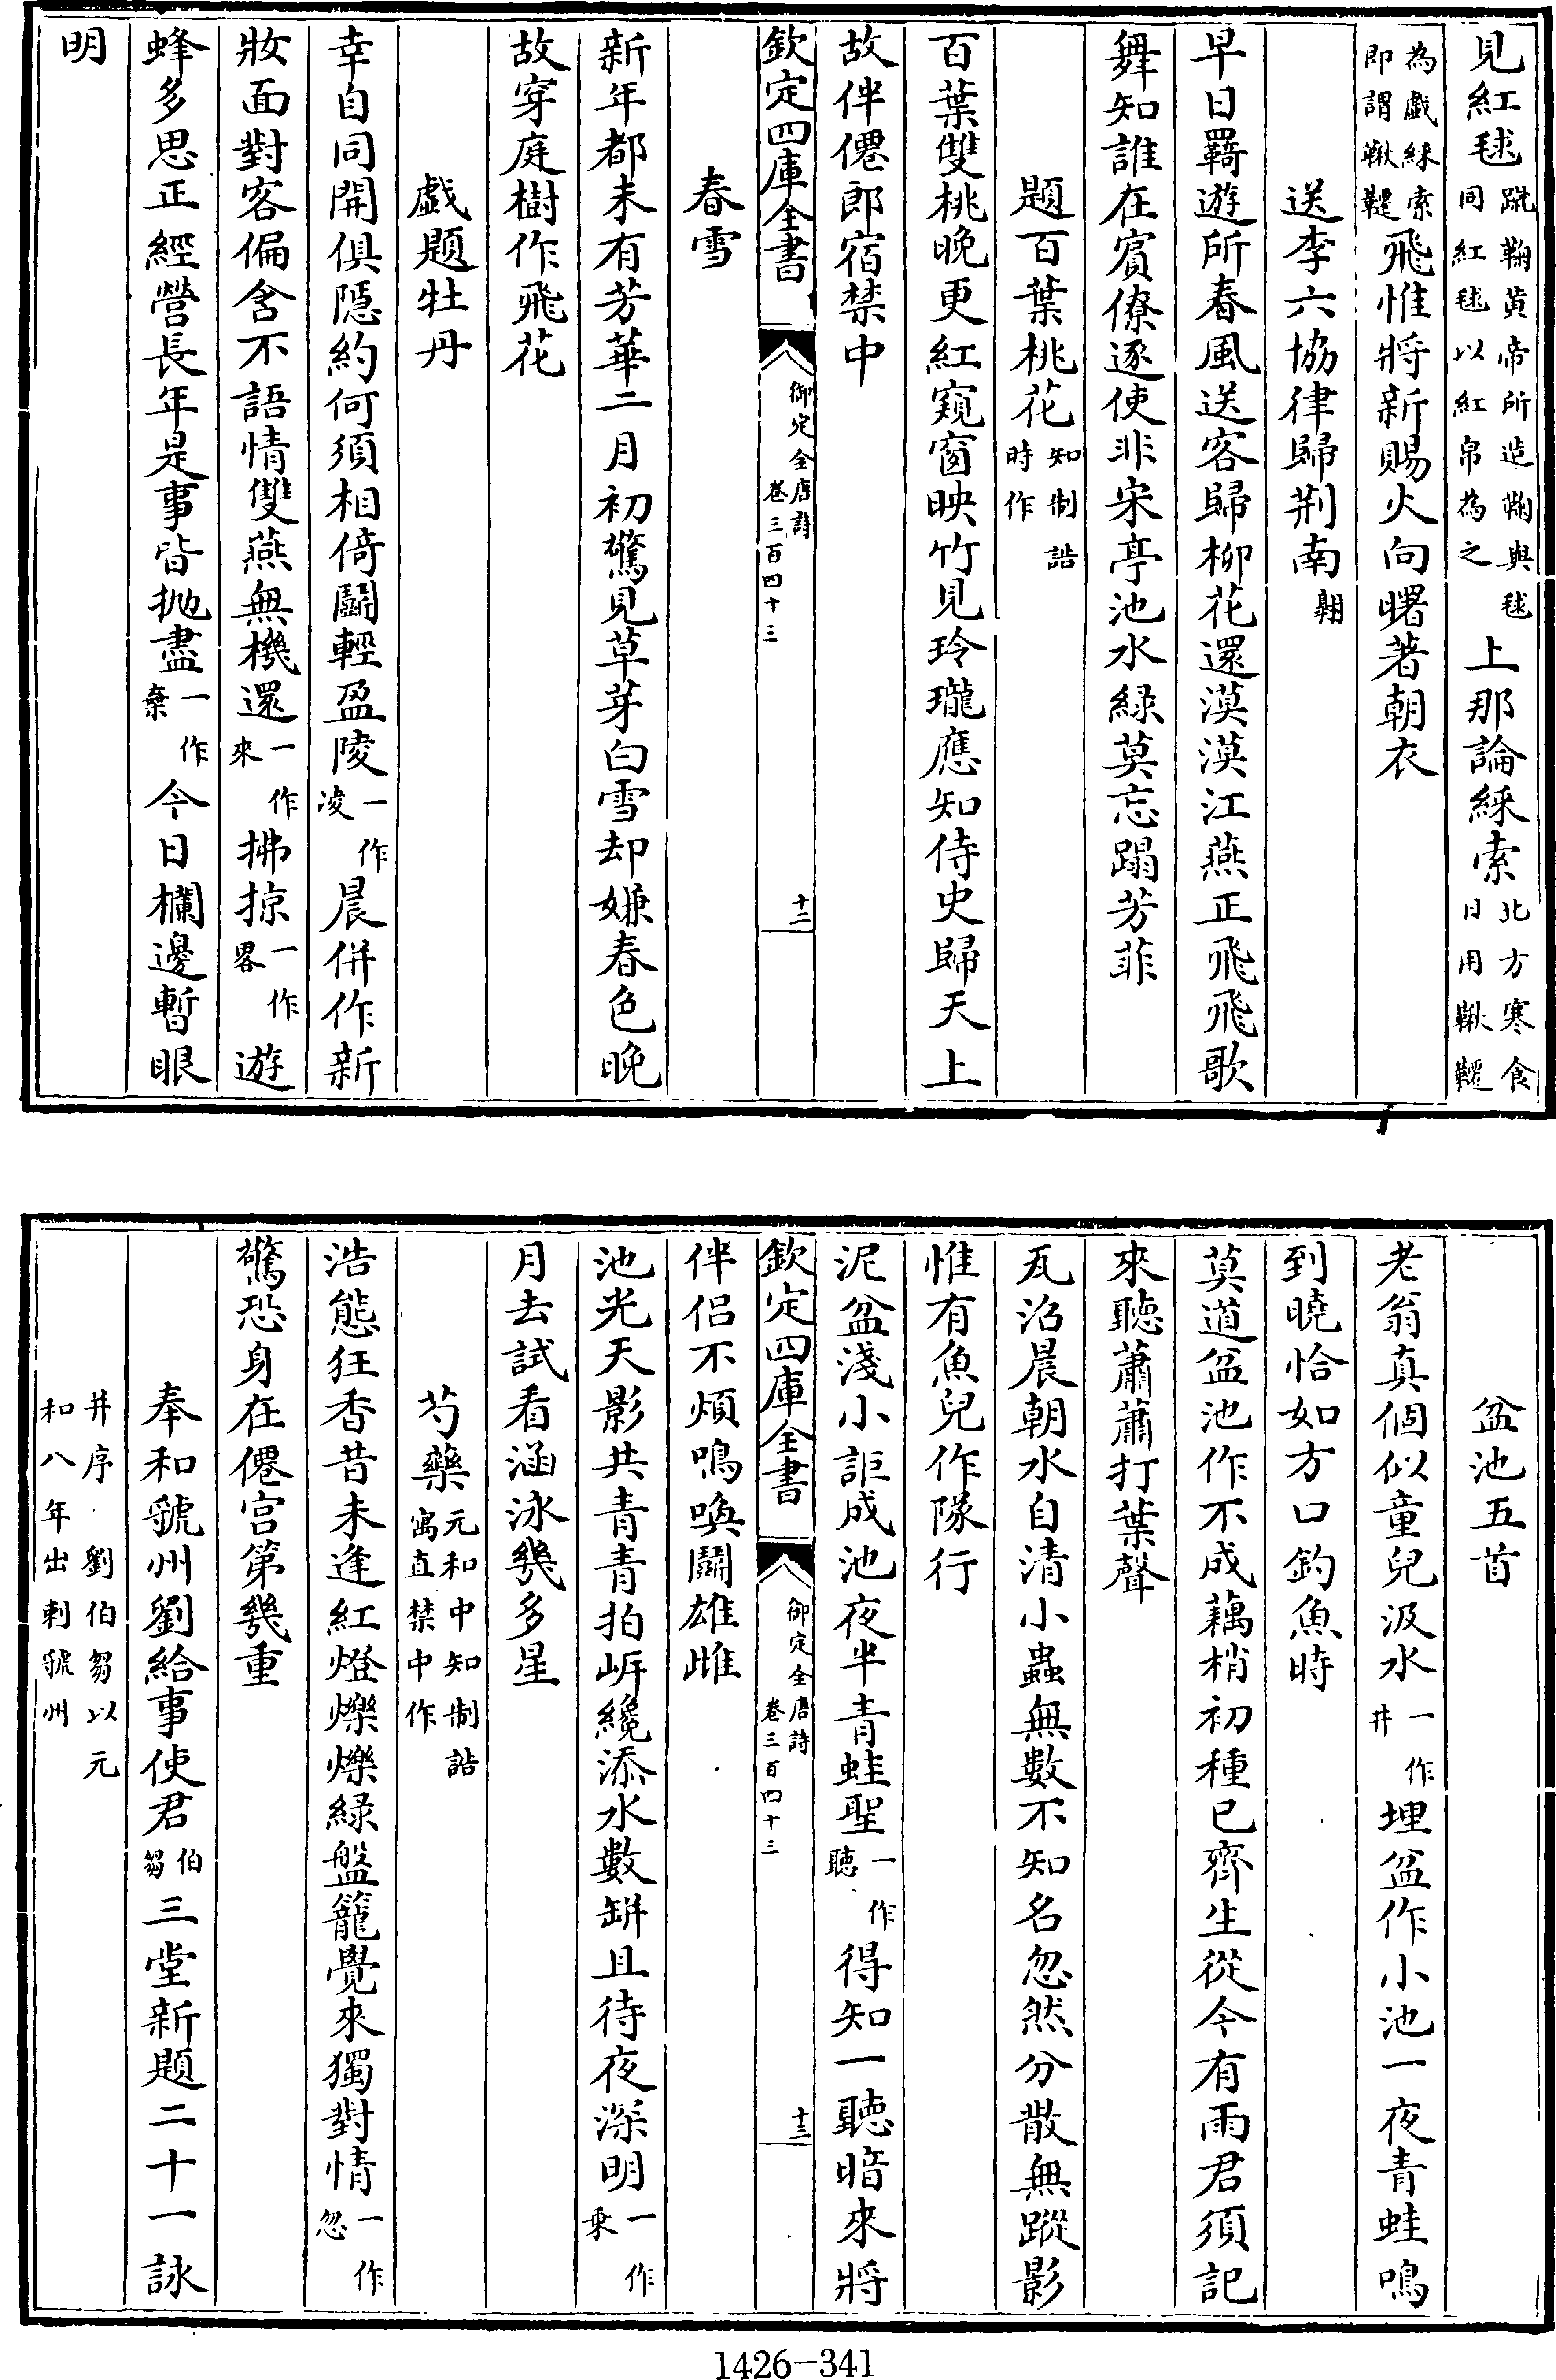 見紅毬蹴鞠黃帝所造鞠與毬同紅毬以紅帛為之上那論綵索北方寒食日用鞦韆
為戲綵索即謂鞦韆飛惟將新賜火向曙著朝衣
送李六協律歸荆南翺
早日羇遊所春風送客歸柳花還漠漠江燕正飛飛歌
舞知誰在賓僚逐使非宋亭池水緑莫忘蹋芳菲
題百葉桃花知制誥時作
百葉雙桃晚更紅窺窗映竹見玲瓏應知侍史歸天上
故伴僊郎宿禁中
欽定四庫全書 御定全唐詩卷三百四十三 十二
春雪
新年都未有芳華二月初驚見草芽白雪却嫌春色晚
故穿庭樹作飛花
戲題牡丹
幸自同開俱隱約何須相倚鬭輕盈陵一作凌晨併作新
妝面對客偏含不語情雙燕無機還一作來拂掠一作畧遊
蜂多思正經營長年是事皆拋盡一作棄今日欄邊暫眼
明
盆池五首
老翁真個似童兒汲水一作井埋盆作小池一夜青蛙鳴
到曉恰如方口釣魚時
莫道盆池作不成藕梢初種已齊生從今有雨君須記
來聽蕭蕭打葉聲
瓦沼晨朝水自清小蟲無數不知名忽然分散無蹤影
惟有魚兒作隊行
泥盆淺小詎成池夜半青蛙聖一作聽得知一聽暗來將
欽定四庫全書 御定全唐詩卷三百四十三 十三
伴侶不煩鳴喚鬭雄雌
池光天影共青青拍岍纔添水數缾且待夜深明一作乗
月去試看涵泳幾多星
芍藥元和中知制誥寓直禁中作
浩態狂香昔未逢紅燈爍爍緑盤籠覺來獨對情一作忽
驚恐身在僊宫第幾重
奉和虢州劉給事使君伯芻三堂新題二十一詠
并序 劉伯芻以元和八年出刺虢州
1426-341